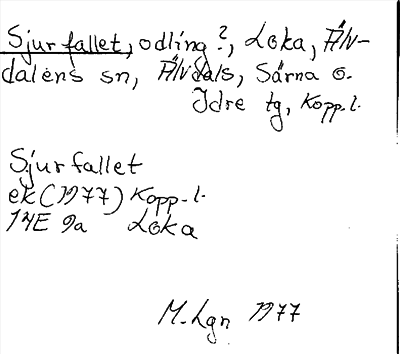 Sjurfallet, odling?, Loka, Älv-
dalens sn, Älvdals, Särna o.
Idre tg, Kopp.l.
Sjurfallet
ek (1977) Kopp.l.
14E 9a Loka
M. Lgn 1977